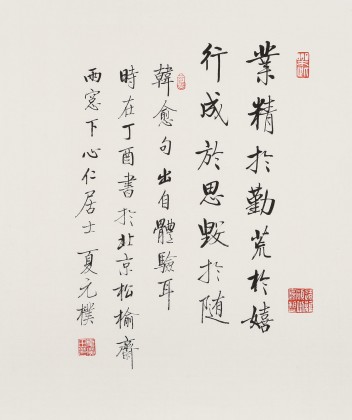 業精於勤荒於嬉
行成於思毀於随
韓愈句出自體驗耳
時在丁酉書於北京松榆齋
雨窓下心仁居士夏元樸